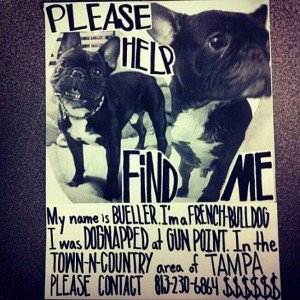 PLEASE
HELP
FIND ME
My name is BUELLER. I'm a FRENCH-BULLDOG
I was DOGNAPPED at GUN POINT. In the
TOWN-N-COUNTRY area of TAMPA
PLEASE CONTACT 813-230-6864 $$$$$$